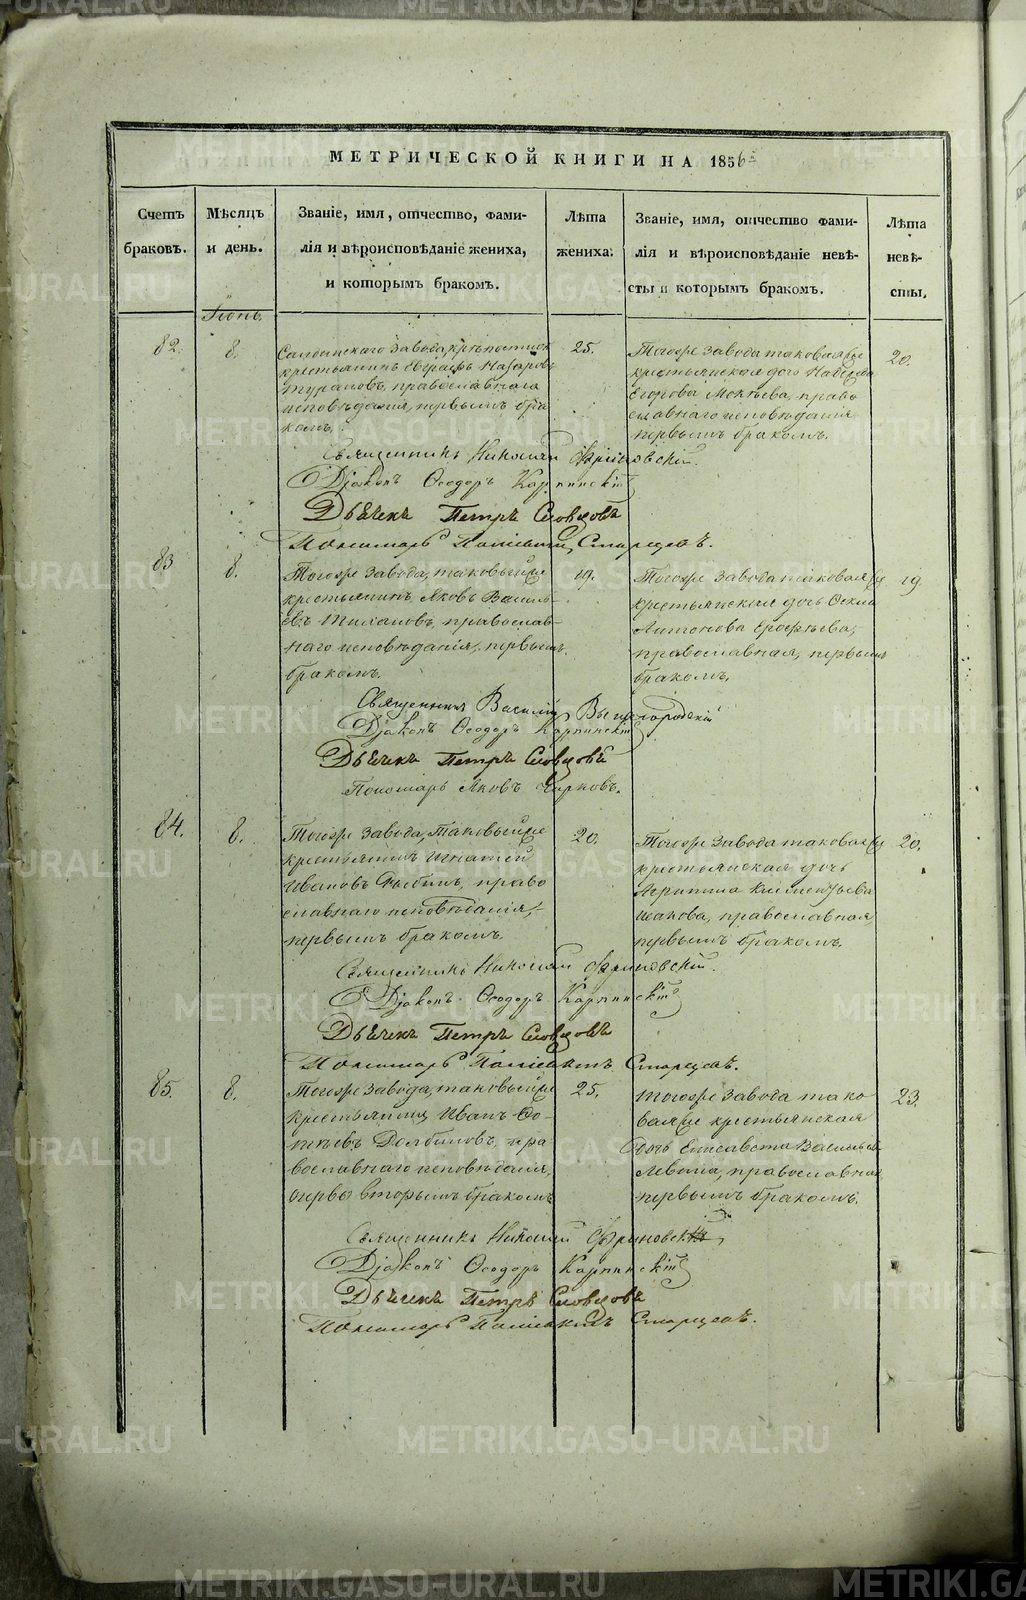 МЕТРИЧЕСКОЙ КНИГИ НА 1856
Счетъ браковъ.
Мѣсяцъ и день.
Званіе, имя, отчество, фами-
лія и вѣроисповѣданіе жениха,
и которымъ бракомъ.
Лѣта
жениха.
Званіе, имя, отчество фами-
лія и вѣроисповѣданіе невѣ-
сты и которымъ бракомъ.
Лѣта
невѣ-
сты.
82.
8.
Салдинскаго завода, крѣпостной
крестьянинъ Евграфъ Назаровъ
православнаго
исповѣданія, первымъ бра
комъ,
25.
Тогоже завода таковаяже
крестьянская дочь
Егорова Мокѣева, право
славнаго исповѣданія
первымъ бракомъ.
20.
Священникъ Николай
Діаконъ Ѳеодоръ Карпинскій
Дьячекъ Петръ Словцовъ
Пономарь Старцевъ.
83
8.
Тогоже завода, таковыйже
крестьянинъ Яковъ Василь-
евъ православ-
наго исповѣданія, первымъ
бракомъ.
19.
Тогоже завода таковаяже
крестьянская дочь
Антонова Ерофѣева,
православная, первымъ
бракомъ.
19.
Священникъ Василій Вышегородскій
Діаконъ Ѳеодоръ Карпинскій
Дьячекъ Петръ Словцовъ
Пономарь Яковъ
84.
8.
Тогоже завода, таковыйже
крестьянинъ Игнатей
Ивановъ право
славнаго исповѣданія,
первымъ бракомъ.
20.
Тогоже завода таковаяже
крестьянская дочь
Агрипина Климентьева
православная
первымъ бракомъ.
20.
Священникъ Николай
Діаконъ Ѳеодоръ Карпинскій
Дьячекъ Петръ Словцовъ
Пономарь Старцевъ.
85.
8.
Тогоже завода, таковыйже
крестьянинъ Иванъ Фо-
тѣевъ Долбиловъ, пра
вославнаго исповѣданія,
вторымъ бракомъ
25.
Тогоже завода тако
ваяже крестьянская
дочь Елисавета Васильева
православная
первымъ бракомъ.
23.
Священникъ Николай
Діаконъ Ѳеодоръ Карпинскій
Дьячекъ Петръ Словцовъ
Пономарь Старцевъ.
METRIKI.GASO-URAL.RU